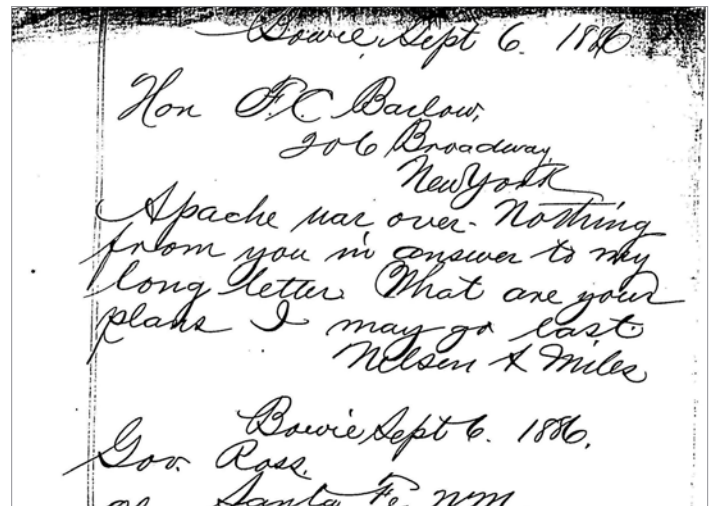 Bowie, Sept 6. 1886
Hon F.C. Barlow,
206 Broadway,
New York
Apache war over. Nothing
from you in answer to my
long letter. What are your
plans I may go east.
Nelson A Miles
Bowie Sept 6. 1886.
Gov. Ross.
Santa Fe, NM